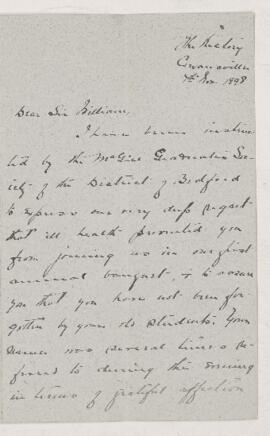 The Rectory
Cowansville
7th Nov. 1898
Dear Sir William,
I have been instruc-
ted by the McGill Graduates' Soc-
iety of the District of Bedford
to express our very deep regret
that ill health prevented you
from joining us in our first
annual banquet, & to assure
you that you have not been for-
gotten by your old students. Your
name was several times re-
ferred to during the evening
in terms of grateful affection